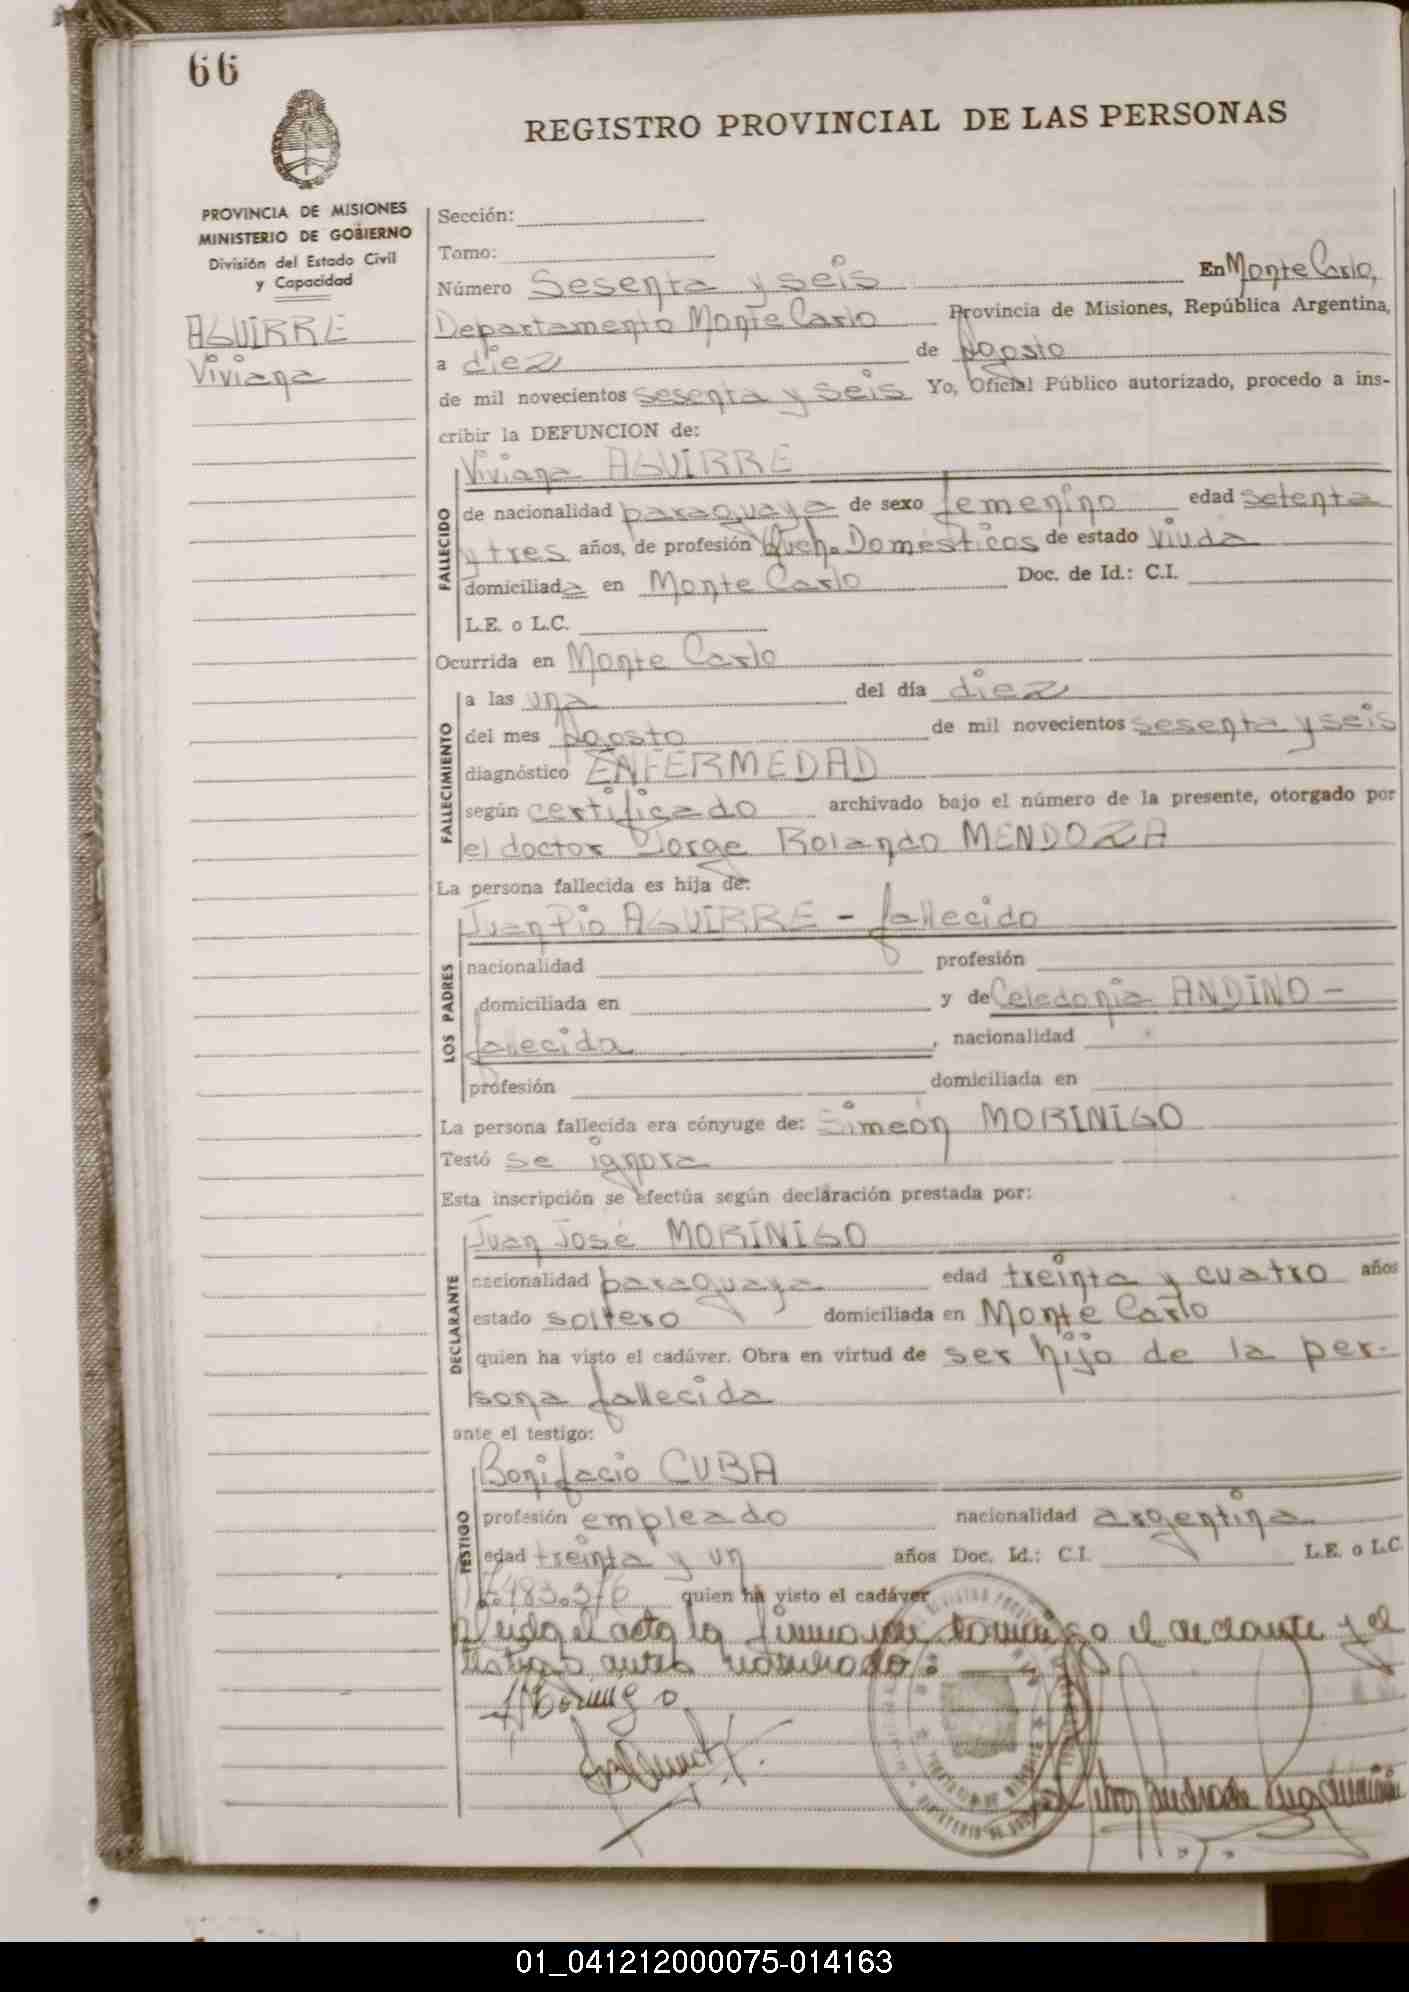 66
REGISTRO PROVINCIAL DE LAS PERSONAS
PROVINCIA DE MISIONES
MINISTERIO DE GOBIERNO
División del Estado Civil
y Capacidad
AGUIRRE
Viviana
Sección:
Tomo:
Número Sesenta y seis En Monte Carlo,
Departamento Monte Carlo Provincia de Misiones, República Argentina,
a diez de Agosto
de mil novecientos sesenta y seis Yo, Oficial Público autorizado, procedo a ins-
cribir la DEFUNCION de:
Viviana AGUIRRE
FALLECIDO
de nacionalidad paraguaya de sexo femenino edad setenta
y tres años, de profesión Domésticos de estado viuda
domiciliada en Monte Carlo Doc. de Id.: C.I.
L.E. o L.C.
Ocurrida en Monte Carlo
FALLECIMIENTO
a las una del día diez
del mes Agosto de mil novecientos sesenta y seis
diagnóstico ENFERMEDAD
según certificado archivado bajo el número de la presente, otorgado por
el doctor Jorge Rolando MENDOZA
La persona fallecida es hija de:
LOS PADRES
Juan Pio AGUIRRE - fallecido
nacionalidad profesión
domiciliada en y de Celedonia ANDINO -
fallecida, nacionalidad
profesión domiciliada en
La persona fallecida era cónyuge de: Simeón MORINIGO
Testó se ignora
Esta inscripción se efectúa según declaración prestada por:
DECLARANTE
Juan José MORINIGO
nacionalidad paraguaya edad treinta y cuatro años
estado soltero domiciliada en Monte Carlo
quien ha visto el cadáver. Obra en virtud de ser hijo de la per-
sona fallecida
ante el testigo:
TESTIGO
Bonifacio CUBA
profesión empleado nacionalidad argentina
edad treinta y un años Doc. Id.: C.I. L.E. o L.C.
quien ha visto el cadáver
Leida el acta la conmigo el y el
testigo antes nombrado
01_041212000075-014163